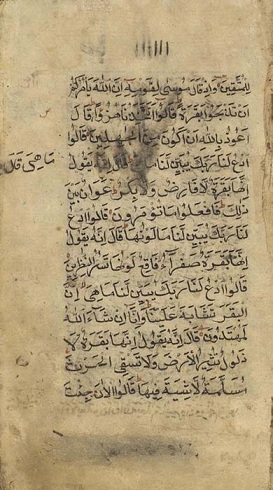 للمتقين واذ قال موسى لقومه ان الله يامركم
ان تذبحوا بقرة قالوا اتتخذنا هزوا قال
اعوذ بالله ان اكون من الجهلين قالوا
ادع لنا ربك يبين لنا ما انه يقول
ما هي قال
انها بقرة لا فارض ولا بكر عوان بين
ذلك فافعلوا ما تؤمرون قالوا ادع
لنا ربك يبين لنا ما لونها قال انه يقول
انها بقرة صفراء فاقع لونها تسر النظرين
قالوا ادع لنا ربك يبين لنا ما هي ان
البقر تشابه علينا وانا ان شاء الله
لمهتدون قال انه يقول انها بقرة لا
ذلول تثير الارض ولا تسقي الحرث
مسلمة لا شية فيها قالوا الان جئت